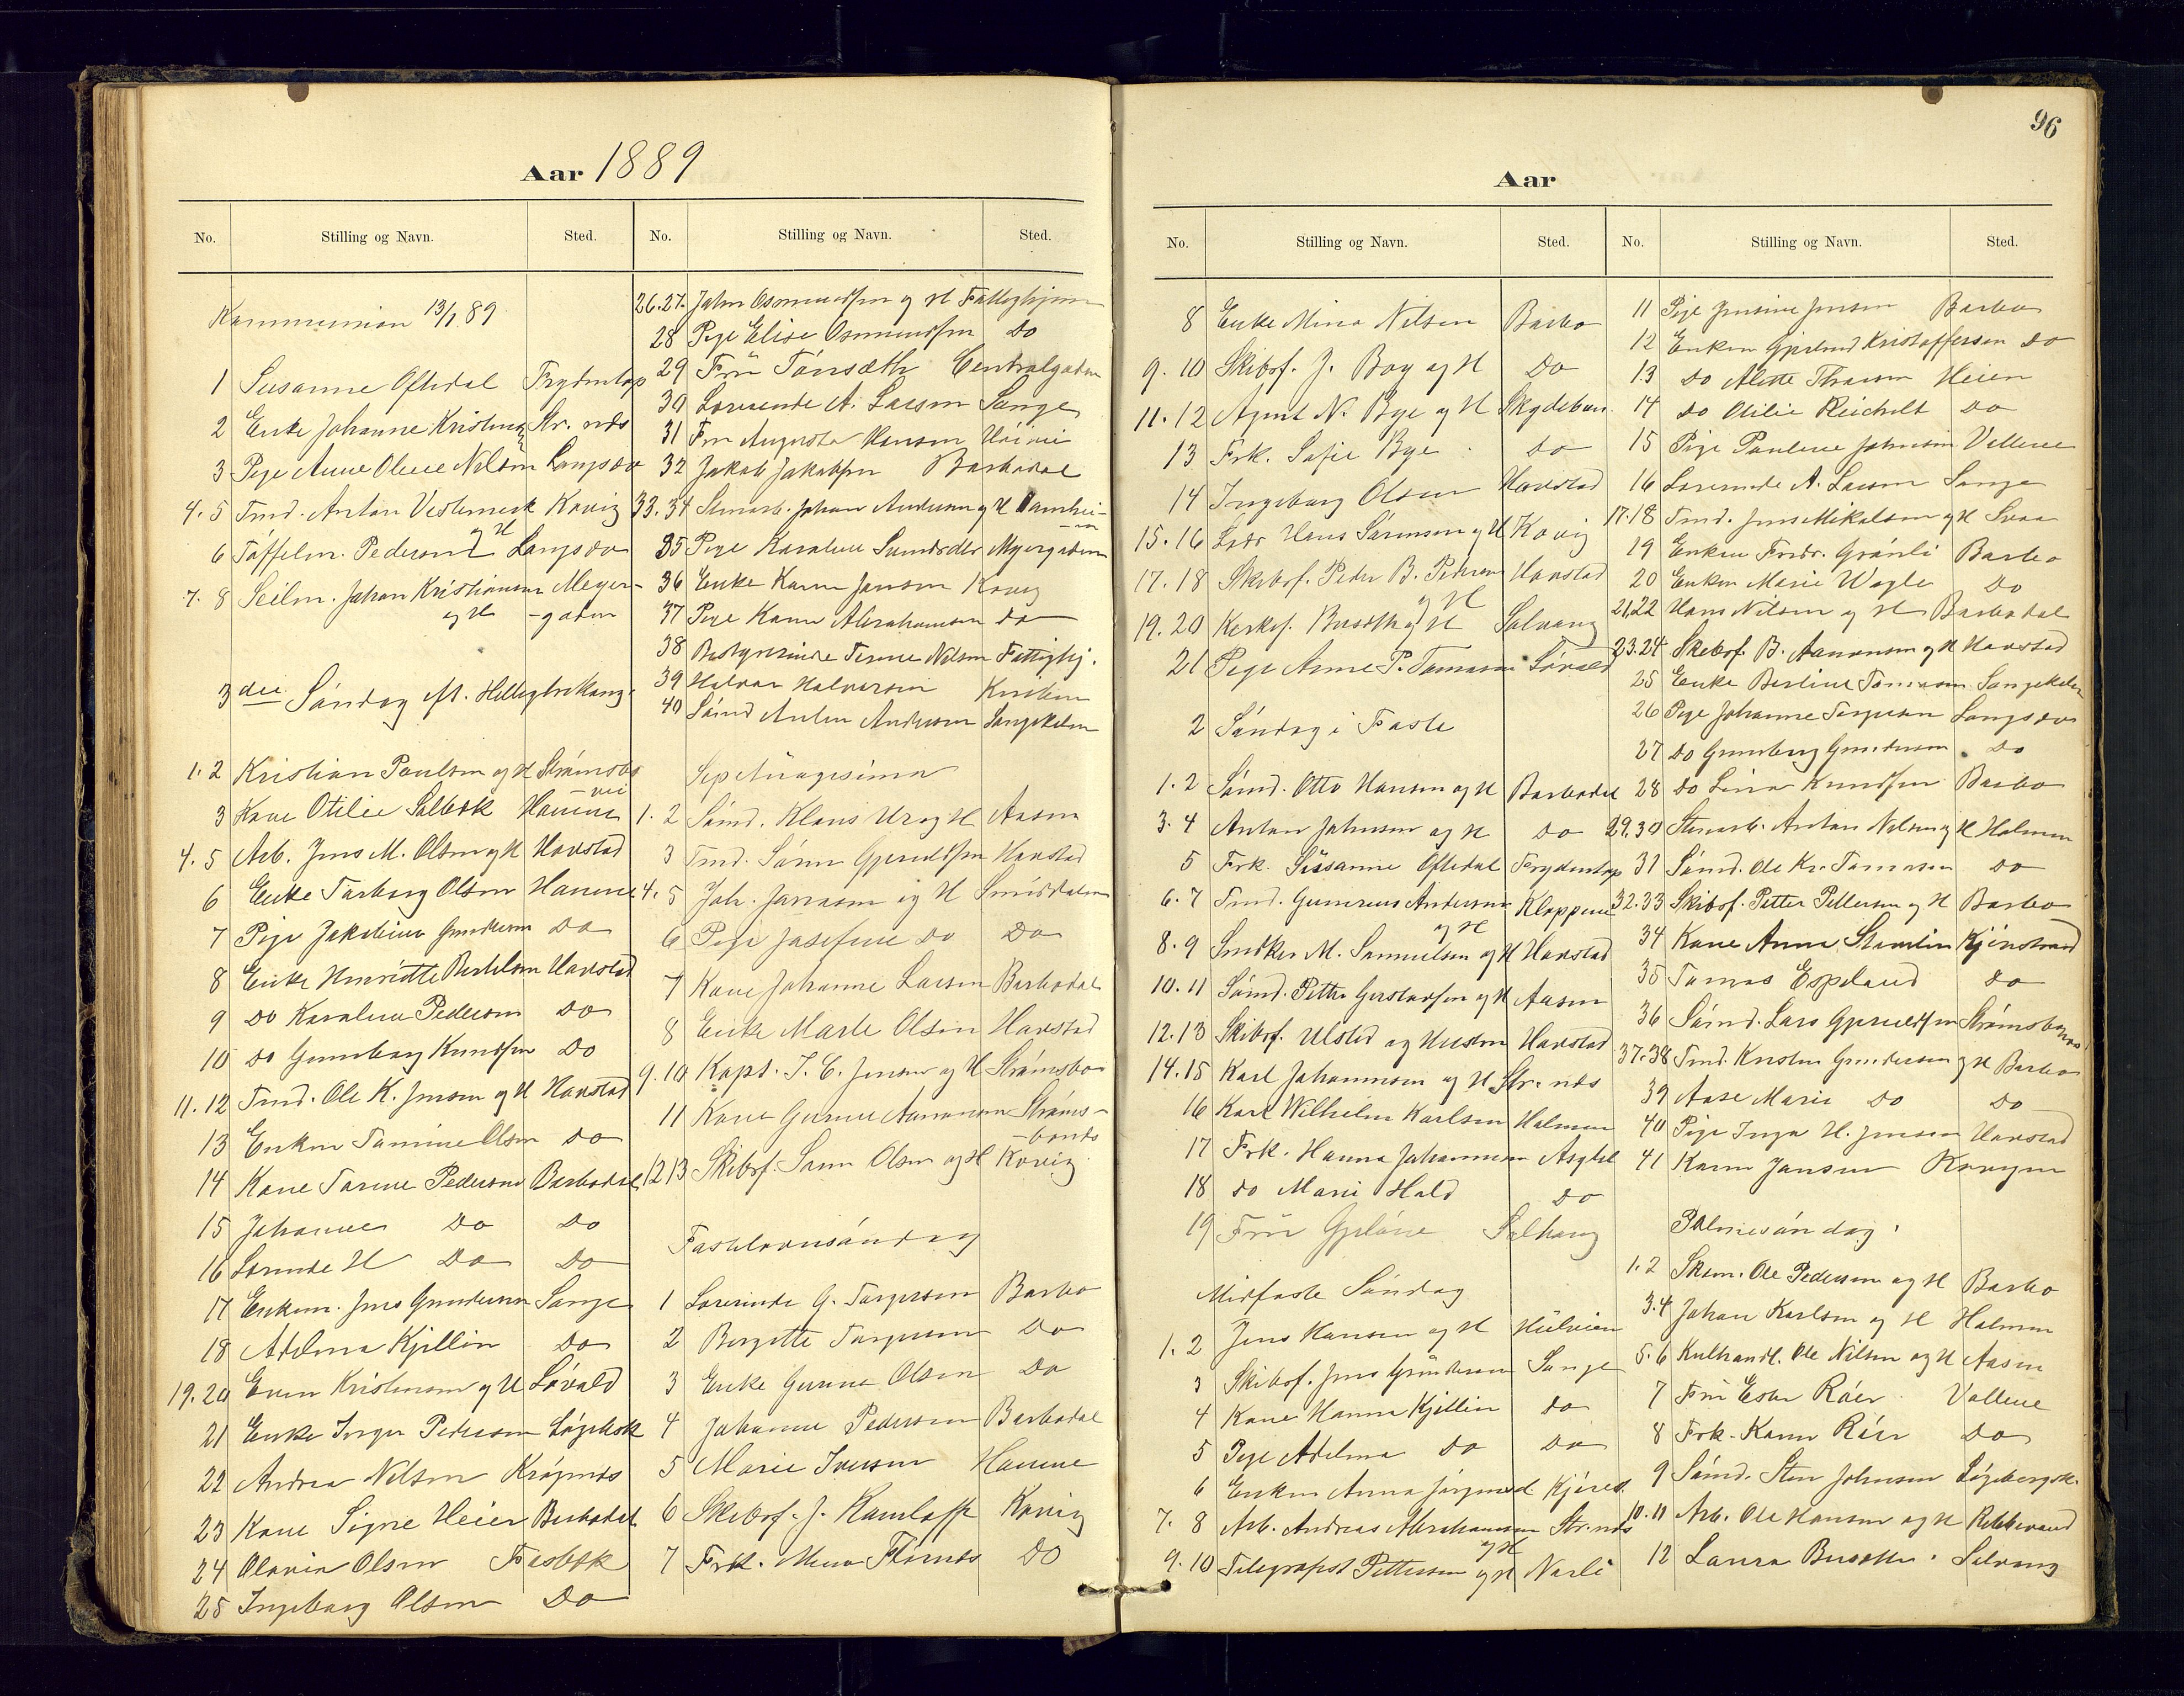 96
Aar 1889
No. Stilling og Navn. Sted.
Kommunion 13/1 89
1 Susanne Oftedal Frydentop
2 Enke Johanne Str. nds
3 Pige Anne Olene Nilsen Langsæ
4. 5 Tmd. Anton Kovig
og H
6 Tøffelm. Pedersen Langsæ
7. 8 Seilm. Johan Kristiansen Meyer-
og H -gaden
3die Søndag ef.
1. 2 Kristian Paulsen og H Strømsbo
-vei
3 Kone Otilie Solbæk
4. 5 Arb. Jens M. Olsen og H Havstad
6 Enke Tarborg Olsen
7 Pige Jakobine Gundersen Do
8 Enke Henriette Bertelsen Havstad
9 Do Karoline Pedersen Do
10 Do Gunborg Knudsen Do
11. 12 Tmd. Ole K. Jensen og H Havstad
13 Enkem. Olsen Do
14 Kone Torine Pedersen Barbodal
15 Johanne Do Do
16 H Do Do
17 Enkem. Jens Gundersen Sange
18 Adelma Kjellin Do
19. 20 Even og H Løvold
21 Enke Inger Pedersen
22 Andrea Nilsen
23 Kone Signe Heier Barbodal
24 Olavia Olsen
25 Ingeborg Olsen Do
No. Stilling og Navn. Sted.
26. 27. John Osmundsen og H
28 Pige Elise Osmundsen Do
29 Frü Tønsæth Centralgaden
30 Lærerinde A. Larsen Sange
31 Fru Augusta Hansen
32 Jakob Jakobsen Barbodal
33. 34 Johan Andersen og H
35 Pige Karoline
36 Enke Karen Jansen Kovig
37 Pige Karen Abrahamsen Do
38 Bestyrerinde Nilsen Fattighj.
39 Halvor Halvorsen
40 Sømd Anton Andersen
Septuagesima
1. 2 Sømd. Klaus og H Aasen
3 Tmd. Søren Gjeruldsen Havstad
4. 5 Joh. og H
6 Pige Josefine Do Do
7 Kone Johanne Larsen Barbodal
8 Enke Marte Olsen Havstad
9. 10 Kapt. J. C. Jensen og H Strømsbo
11 Kone Gunne Strøms-
-bonds
12 13 Skibsf. Olsen og H Kovig
Fastelavnsøndag
1 Lærerinde G. Torgersen Barbo
2 Bergitte Torgersen Do
3 Enke Gunne Olsen Do
4 Johanne Pedersen Barbodal
5 Marie Iversen
6 Skibsf. J. Kovig
7 Frk. Do
Aar
No. Stilling og Navn. Sted.
8 Enke Mina Nilsen Barbo
9. 10 Skibsf. J. Boy og H Do
11. 12 Agent N. Bye og H
13 Frk. Sofie Bye Do
14 Ingeborg Olsen Havstad
15. 16 Lods Hans Sørensen og H Kovig
17. 18 Skibsf. Peder B. Pedersen Havstad
og H
19. 20 og H Solvang
21 Pige Anne P. Tomasen Løvold
2 Søndag i Faste
1. 2 Sømd. Otto Hansen og H Barbodal
3. 4 Anton Johnsen og H Do
5 Frk. Süsanne Oftedal Frydentop
6. 7 Tmd. Andersen Kloppene
og H
8. 9 M. Samuelsen og H Havstad
10. 11 Sømd. Petter Gustavsen og H Aasen
12. 13 Skibsf. Ulsted og Hustru Havstad
14. 15 Karl Johannesen og H Str. nds
16 Karl Wilhelm Karlsen Holmen
17 Frk. Hanna Johannesen
18 Do Marie Hald Do
19 Frü
Midfaste Søndag
1. 2 Jens Hansen og H
3 Skibsf. Jens Gündersen Sange
4 Kone Hanna Kjellin Do
5 Pige Adelma Do Do
6 Enkem Anna
7. 8 Arb. Andreas Abrahamsen Str. nds
og H
9. 10 Telegrafist Pettersen og H
No. Stilling og Navn. Sted.
11 Pige Jensine Jensen Barbo
12 Enkem Gjerlmd Kristoffersen Do
13 Do Alette Heien
14 Do Otilie Reichelt Do
15 Pige Pauline Johnsen Vollene
16 Lærerinde A. Larsen Sange
17. 18 Tmd. Jens Mikalsen og H
19 Enkem Fredr. Grønli Barbo
20 Enkem Marie Wagle Do
21,22 Hans Nilsen og H Barbodal
23. 24 Skibsf. B. og H Havstad
25 Enke Berline Tomasen
26 Pige Johanne Torgersen Langsæ
27 Do Gunborg Gundersen Do
28 Do Lina Knudsen Barbo
29. 30 Anton Nilsen og H Holmen
31 Sømd. Ole Kr. Tomasen Do
32. 33 Skibsf. Petter Pettersen og H Barbo
34 Kone Anna
35 Tomas Espeland Do
36 Sømd. Lars Gjeruldsen
37. 38 Tmd. Gundersen og H Barbo
39 Aase Marie Do Do
40 Pige Inga H. Jensen Havstad
41 Karen Jansen
Palmesøndag.
1. 2 Skom. Ole Pedersen og H Barbo
3. 4 Johan Karlsen og H Holmen
5. 6 Kulhandl. Ole Nilsen og H Aasen
7 Frü Ester Røer Vollene
8 Frk. Karen Røer Do
9 Sømd. Sten Johnsen
10. 11 Arb. Ole Hansen og H
12 Laura Solvang